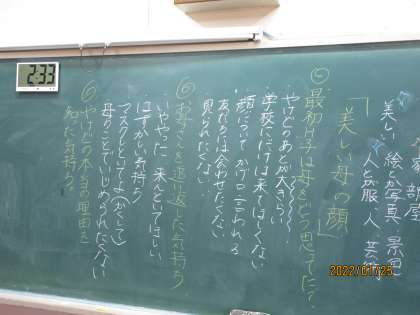 家 部屋
美しい 絵とか写真、景色
人とか服、人 芸術
「美しい母の顔」
◎最初け子は母をどう思ってた?
やけどのあとが大きい
学校にだけは来てほしくない
顔によって かげ口言われる
友だちには会わせたくない
見られたくない
◎お母さんを追い返した気持ち
いややった 来んといてほしい
はずかしい気持ち
マスクしといてよ(かくして)
母のことでいじめられたくない
◎やけどの本当の理由を
知った気持ち。
2:33
2022/01/25